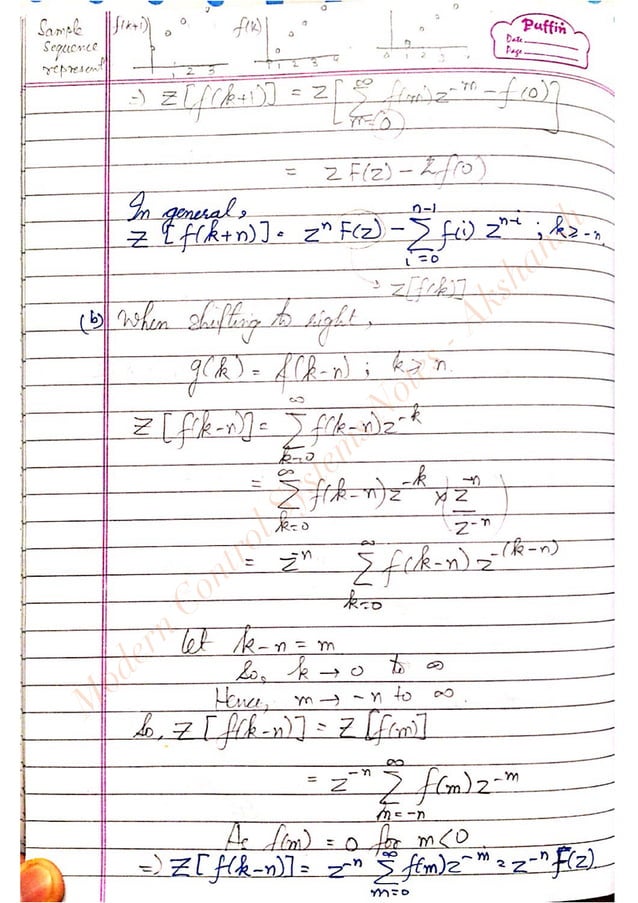 Sample
Sequence
represent
f(k+1)
1 2 3
f(k)
0 1 2 3 4
0
Puffin
Date
Page
=) Z[f(k+1)] = Z[∑_{m=0}^{∞} f(m) z^{-m} - f(0)]
= Z F(z) - Z f(0)
In general,
Z [f(k+n)] = z^n F(z) - ∑_{i=0}^{n-1} f(i) z^{n-i} ; k ≥ -n
Z[f(k)]
(b) When shifting to right,
g(k) = f(k-n) ; k ≥ n.
Z [f(k-n)] = ∑_{k=0}^{∞} f(k-n) z^{-k}
= ∑_{k=0}^{∞} f(k-n) z^{-k} × (z^{-n} / z^{-n})
= z^{-n} ∑_{k=0}^{∞} f(k-n) z^{-(k-n)}
Let k-n = m
So, k → 0 to ∞
Hence, m → -n to ∞.
So, Z [f(k-n)] = Z [f(m)]
= z^{-n} ∑_{m=-n}^{∞} f(m) z^{-m}
As f(m) = 0 for m<0
=) Z[f(k-n)] = z^{-n} ∑_{m=0}^{∞} f(m) z^{-m} = z^{-n} F(z)
Modern Control Systems Notes - Akshansh